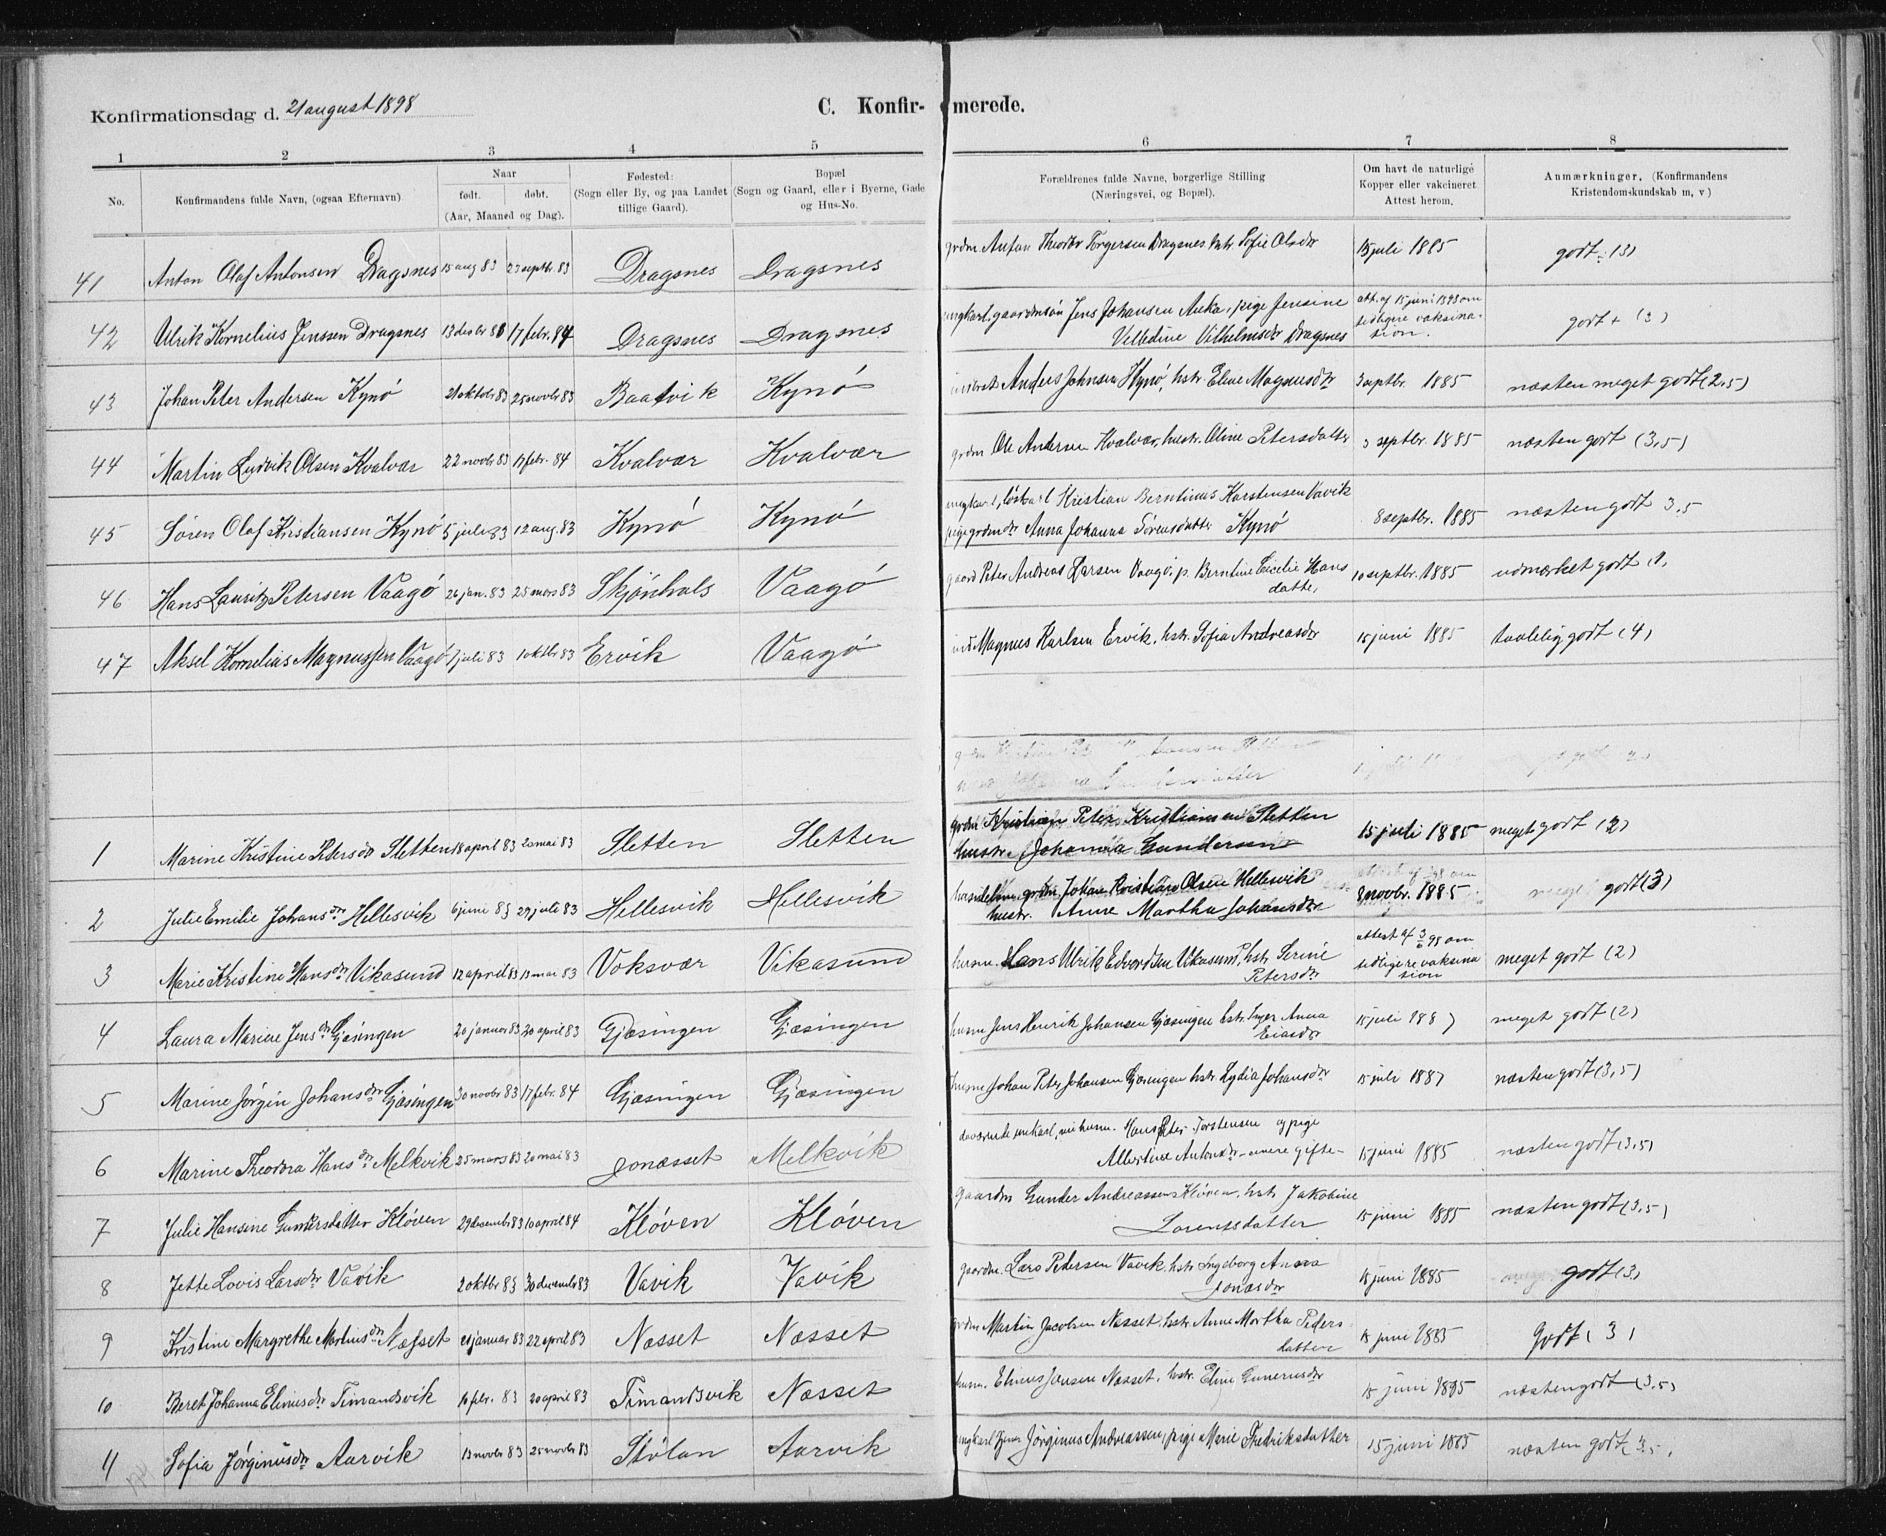 Konfirmationsdag d. 21 august 1898
C. Konfir- merede.
1 2 3 4 5 6 7 8
No. Konfirmandens fulde Navn, (ogsaa Efternavn) Naar født. døbt. (Aar, Maaned og Dag). Fødested: (Sogn eller By, og paa Landet tillige Gaard). Bopæl (Sogn og Gaard, eller i Byerne, Gade og Hus-No. Forældrenes fulde Navne, borgerlige Stilling (Næringsvei, og Bopæl). Om havt de naturlige Kopper eller vakcineret Attest herom. Anmærkninger. (Konfirmandens Kristendomskundskab m, v)
41 Anton Olaf Antonsen Dragsnes 15 aug 83 23 septbr 83 Dragsnes Dragsnes grdm Anton Theodor Torgersen Dragsnes hstr Sofie Olsdr 15 juli 1885 godt (3)
42 Ulrik Kornelius Jenssen Dragsnes 13 desbr 83 17 febr. 84 Dragsnes Dragsnes ungkarl, gaardmsøn Jens Johansen Auka, pige Jensine
Velledine Vilhelmsdr Dragsnes att. af 15 juni 1898 om tidligere vaksinasion. godt + (3)
43 Johan Peter Andersen Kynø 21 oktobr 83 25 novbr 83 Baatvik Kynø Anders Johnsen Kynø, hstr. Eline Magnusdr 3 septbr. 1885 næsten meget godt (2,5)
44 Martin Ludvik Olsen Kvalvær 22 novbr 83 17 febr. 84 Kvalvær Kvalvær grdm Ole Andersen Kvalvær, hustr. Oline Petersdatter 3 septbr. 1885 næsten godt (3,5)
45 Søren Olaf Kristiansen Kynø 5 juli 83 12 aug. 83 Kynø Kynø ungkarl, løskarl Kristian Berntinus Karstensen Vavik
pige grdmdr Anna Johanna Sørensdatter Kynø 8 septbr. 1885 næsten godt 3,5
46 Hans Lauritz Petersen Vaagø 26 jan. 83 25 mars 83 Skjønhals Vaagø gaard Peter Andreas Larsen Vaagø, p. Berntine Cicelie Hans
datter 10 septbr. 1885 udmærket godt (1)
47 Aksel Kornelius Magnussen Vaagø 1 juli 83 1 oktbr 83 Ervik Vaagø ind Magnus Karlsen Ervik, hstr. Sofia Andreasdr 15 juni 1885 taalelig godt (4)
1 Marine Kristine Petersdr Sletten 18 april 83 20 mai 83 Sletten Sletten grdm Kristian Peter Kristiansen Sletten
hustr. Johanna Gundersen 15 juli 1885 meget godt (2)
2 Julie Emilie Johansdr Hellesvik 6 juni 83 29 juli 83 Hellesvik Hellesvik grdm. Johan Kristian Olsen Hellesvik
hustr. Anne Martha Johansdr 8 novbr. 1885 godt (3)
3 Marie Kristine Hansdr Vikasund 12 april 83 13 mai 83 Voksvær Vikasund husm. Hans Ulrik Edvardsen Vikasund, hstr. Serine
Petersdr attest af 3/6 98 om tidligere vaksinasion meget godt (2)
4 Laura Marine Jensdr Gjæsingen 20 januar 83 20 april 83 Gjæsingen Gjæsingen husm Jens Henrik Johansen Gjæsingen hstr Inger Anna
Eliasdr 15 juli 1887 meget godt (2)
5 Marine Jørgin Johansdr Gjæsingen 30 novbr 83 17 febr. 84 Gjæsingen Gjæsingen husm Johan Peter Johansen Gjæsingen hstr Lydia Johansdr 15 juli 1887 næsten godt (3,5)
6 Marine Theodora Hansdr Melkvik 25 mars 83 20 mai 83 Jonæsset Melkvik daværende unkarl, nu husm. Hans Peter Torstensen og pige
Albertine Antonsdr – senere gifte – 15 juni 1885 næsten godt (3,5)
7 Julie Hansine Gundersdatter Kløven 29 desembr 83 10 april 84 Kløven Kløven gaardm Gunder Andreassen Kløven, hstr Jakobine
Lorentsdatter 15 juni 1885 næsten godt (3,5)
8 Jette Lovis Larsdr Vavik 2 oktbr 83 30 desembr 83 Vavik Vavik gaardm. Lars Petersen Vavik, hstr. Ingeborg Anna
Jonasdr 15 juni 1885 godt (3)
9 Kristine Margrethe Martinsdr Næsset 21 januar 83 22 april 83 Næsset Næsset grdm Martin Jacobsen Næsset, hstr. Anne Martha Peders
datter 15 juni 1885 godt (3)
10 Beret Johanna Elinusdr Timandsvik 10 febr. 83 20 april 83 Timandsvik Næsset husm. Elinus Jensen Næsset, hstr. Eline Gunerusdr 15 juni 1885 næsten godt (3,5)
11 Sofia Jørginusdr Aarvik 13 novbr 83 25 novbr 83 Stølan Aarvik ungkarl tjener Jørginus Andreassen, pige Marie Fredriksdatter 15 juni 1885 næsten godt 3,5